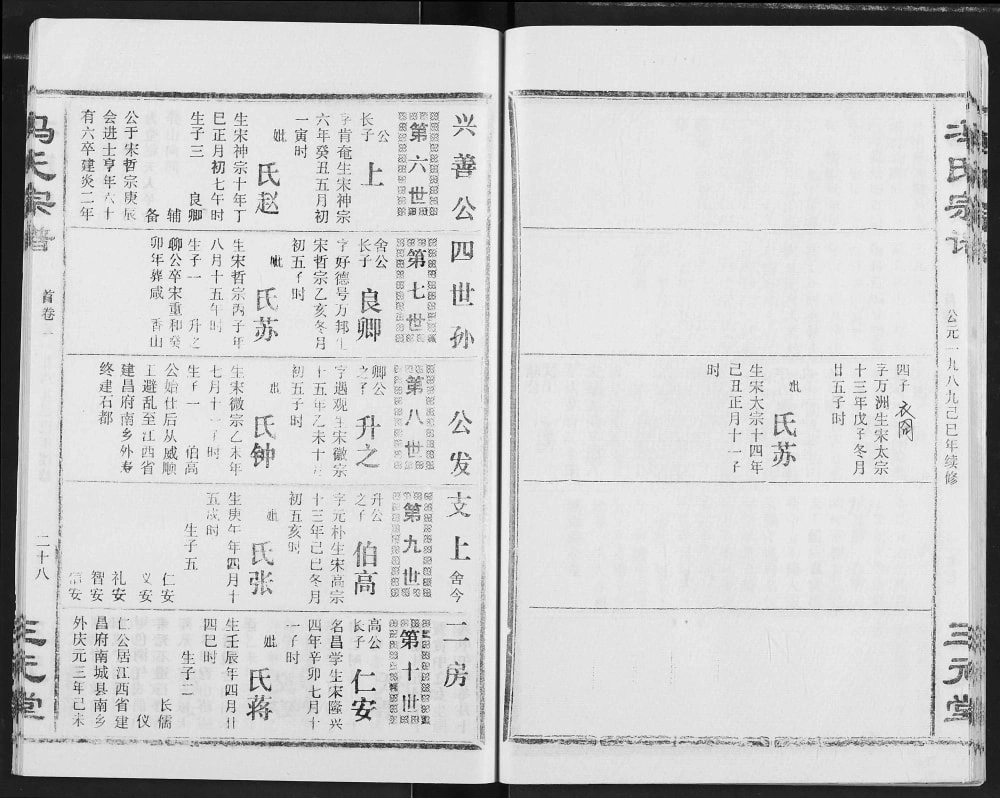 公元一九八九己巳年续修
三元堂
四子 衣冈
字万洲生宋太宗
十三年戊子冬月
廿五子时
妣
氏苏
生宋太宗十四年
己丑正月十一子
时
兴善公四世孙 公发支上舍今二房
第六世
公
长子 上
字肯奄生宋神宗
六年癸丑五月初
一寅时
妣
氏赵
生宋神宗十年丁
巳正月初七午时
生子三 良卿
辅
备
公于宋哲宗庚辰
会进士享年六十
有六卒建炎二年
第七世
舍公
长子 良卿
字好德号万邦生
宋哲宗乙亥冬月
初五子时
妣
氏苏
生宋哲宗丙子年
八月十五午时
生子一 升之
聊公卒宋重和癸
卯年葬咸 香山
第八世
卿公
之子 升之
字遇观生宋徽宗
十五年乙未十月
初五子时
妣
氏钟
生宋徽宗乙未年
七月十一子时
生子一 伯高
公始仕后从威顺
王避乱至江西省
建昌府南乡外寿
终建石都
第九世
升公
之子 伯高
字元朴生宋高宗
十三年己巳冬月
初五亥时
妣
氏张
生庚午年四月十
五戌时
生子五
仁安
义安
礼安
智安
信安
第十世
高公
长子 仁安
名昌学生宋隆兴
四年辛卯七月十
一子时
妣
氏蒋
生壬辰年四月廿
四巳时
生子二
长儒
仪
仁公居江西省建
昌府南城县南乡
外庆元三年己未
首卷
二十八